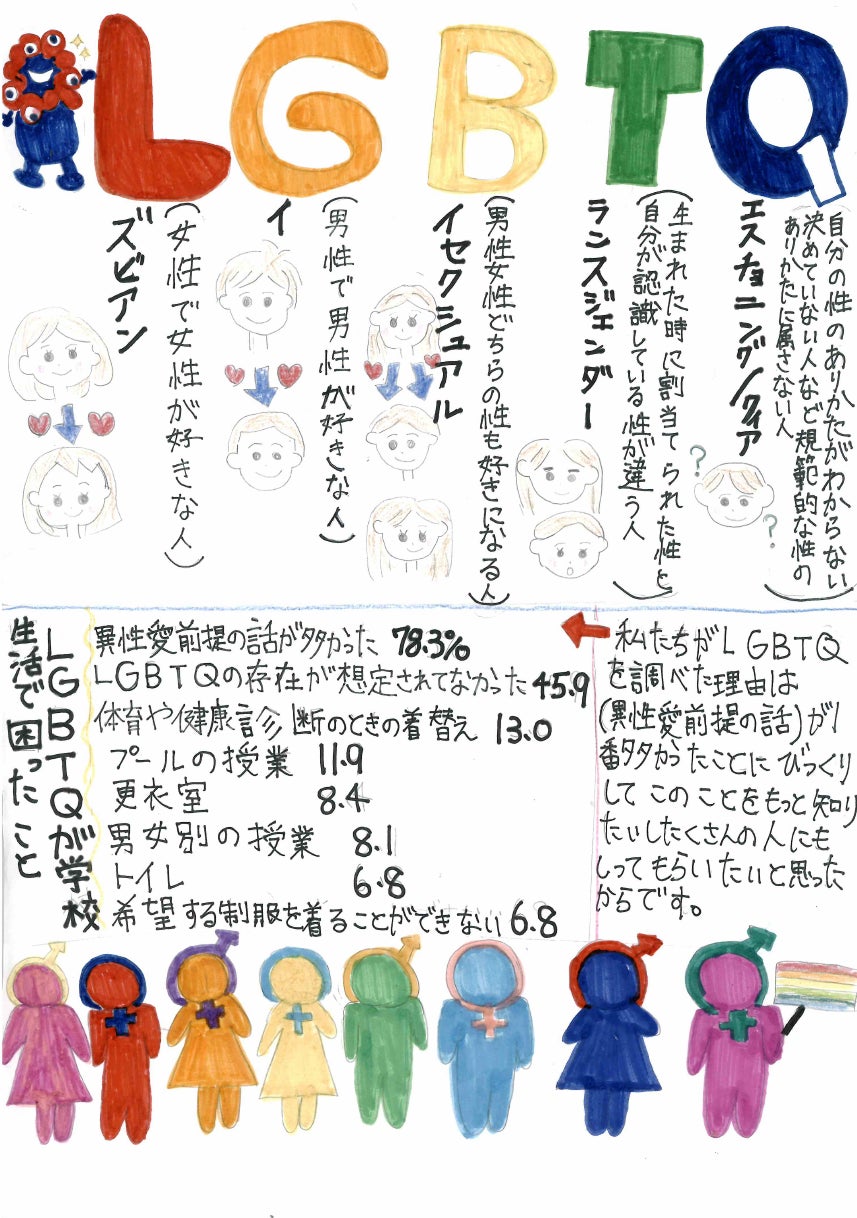 LGBTQ
ズビアン
(女性で女性が好きな人)
イ
(男性で男性が好きな人)
イセクシュアル
(男性女性どちらの性も好きになる人)
ランスジェンダー
(生まれた時に割当てられた性と
自分が認識している性が違う人)
エスチョニング/クィア
(自分の性のありかたがわからない
決めていない人など規範的な性の
ありかたに属さない人)
?
?
LGBTQが学校
生活で困ったこと
異性愛前提の話が多かった 78.3%
LGBTQの存在が想定されてなかった 45.9
体育や健康診断のときの着替え 13.0
プールの授業 11.9
更衣室 8.4
男女別の授業 8.1
トイレ 6.8
希望する制服を着ることができない 6.8
私たちがLGBTQ
を調べた理由は
(異性愛前提の話)が1
番多かったことにびっくり
してこのことをもっと知り
たいしたくさんの人にも
しってもらいたいと思った
からです。